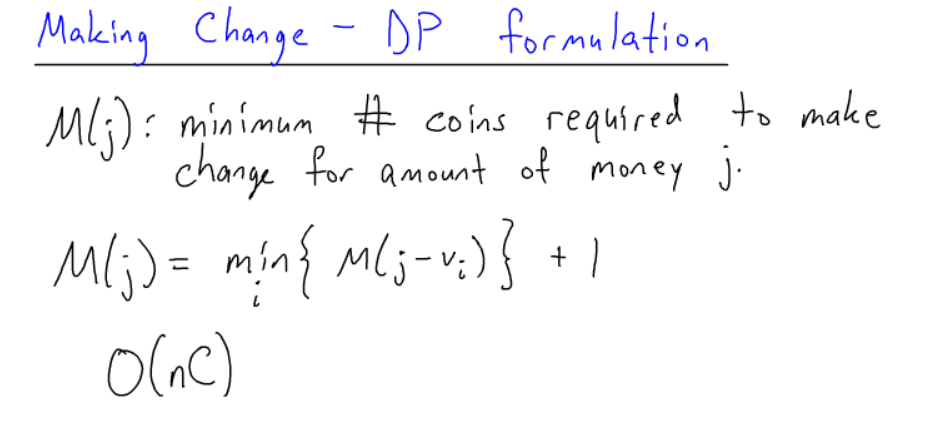 Making Change - DP formulation
M(j): minimum # coins required to make
change for amount of money j.
M(j) = min{ M(j-vi) } + 1
i
O(nC)